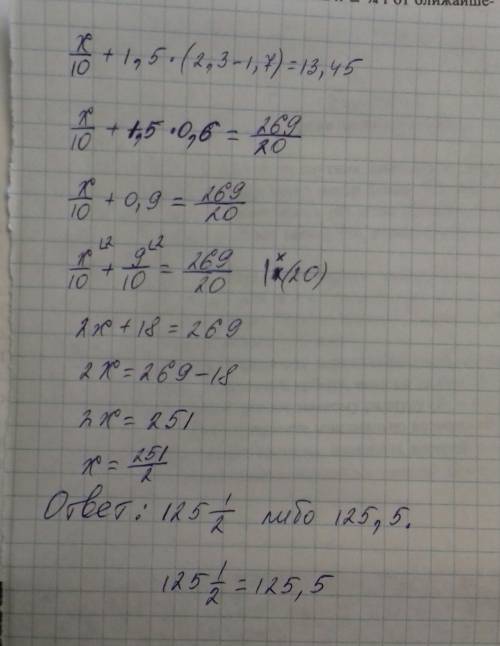 от ближайше-
x/10 + 1,5 · (2,3 - 1,7) = 13,45
x/10 + 1,5 · 0,6 = 269/20
x/10 + 0,9 = 269/20
x/10 + 9/10 = 269/20 | x (20)
2x + 18 = 269
2x = 269 - 18
2x = 251
x = 251/2
Ответ: 125 1/2 либо 125,5.
125 1/2 = 125,5